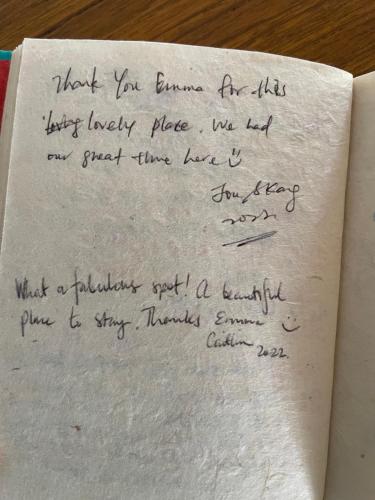 Thank You Emma for this
lovely place. We had
our great time here
2022
What a fabulous spot! A beautiful
place to stay. Thanks Emma
Caitlin
2022.